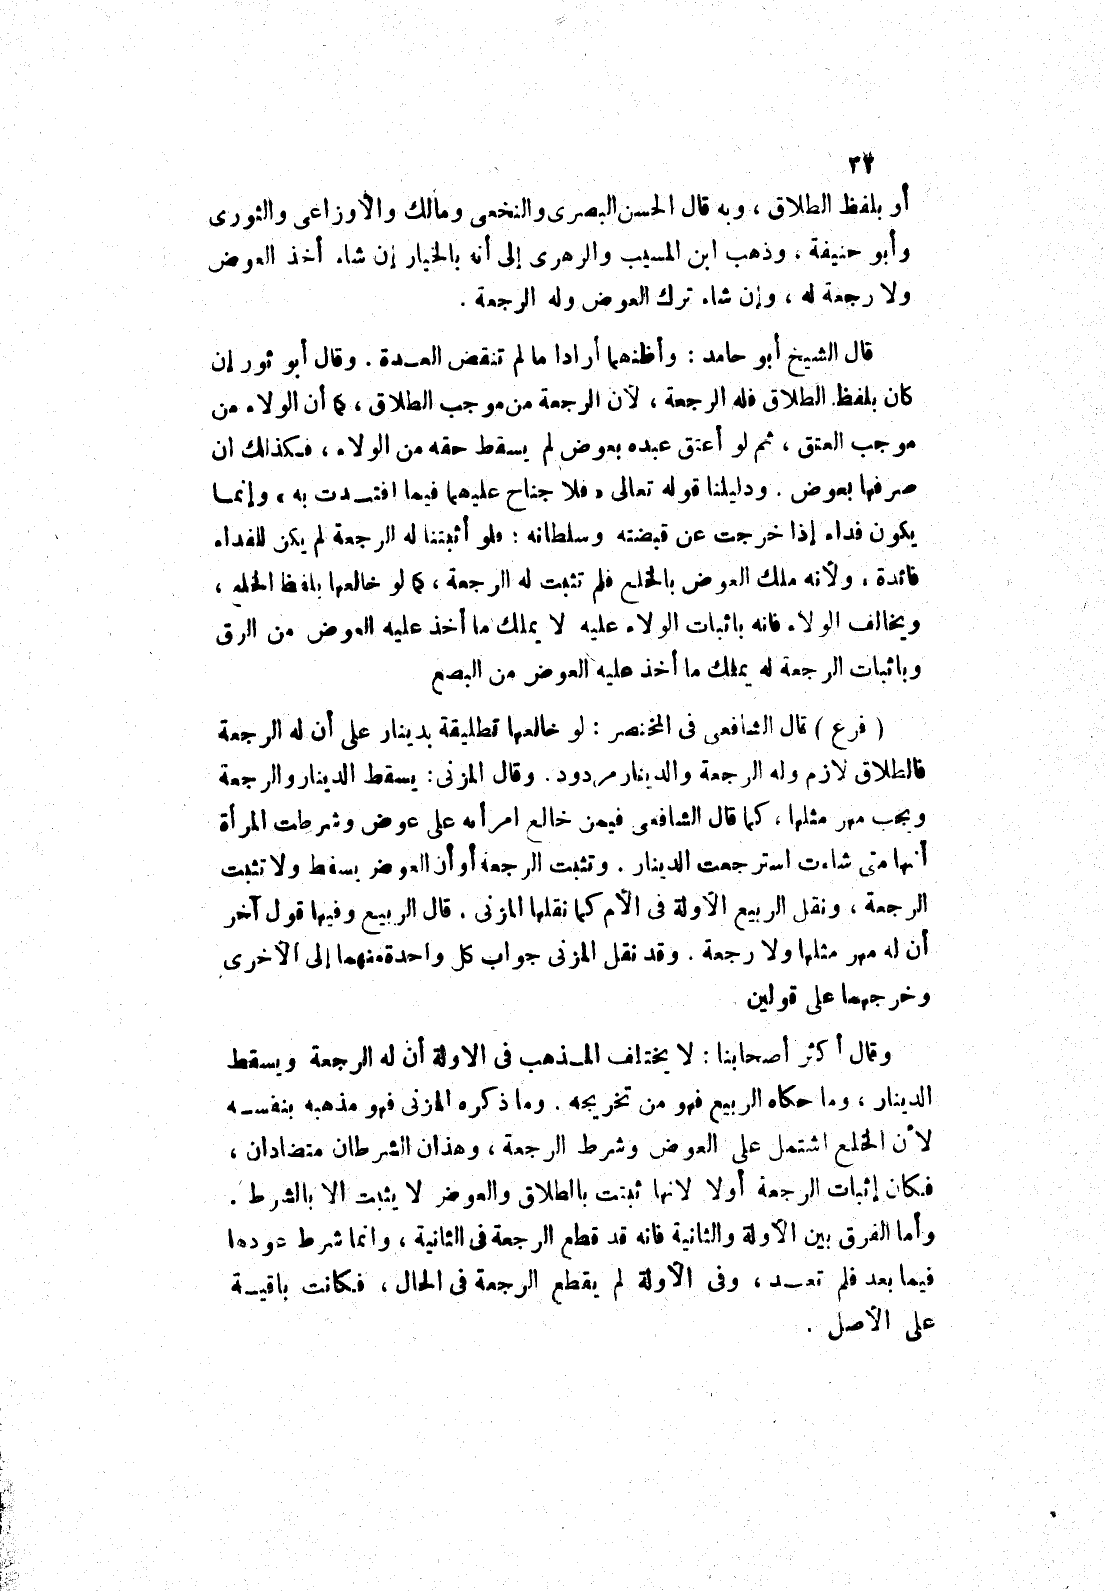 ٣٢
أو بلفظ الطلاق ، وبه قال الحسن البصرى والنخعى ومالك والأوزاعى والثورى
وأبو حنيفة ، وذهب ابن المسيب والزهرى إلى أنه بالخيار إن شاء أخذ العوض
ولا رجعة له ، وإن شاء ترك العوض وله الرجعة .
قال الشيخ أبو حامد : وأظنهما أرادا ما لم تنقض العـدة . وقال أبو ثور إن
كان بلفظ الطلاق فله الرجعة ، لأن الرجعة من موجب الطلاق ، كما أن الولاء من
موجب العتق ، ثم لو أعتق عبده بعوض لم يسقط حقه من الولاء ، فـكذلك ان
صرفها بعوض . ودليلنا قوله تعالى « فلا جناح عليهما فيما افتـدت به » وإنمـا
يكون فداء إذا خرجت عن قبضته وسلطانه : فلو أثبتنا له الرجعة لم يكن للفداء
فائدة ، ولأنه ملك العوض بالخلع فلم تثبت له الرجعة ، كما لو خالعها بلفظ الخلع ،
ويخالف الولاء فانه باثبات الولاء عليه لا يملك ما أخذ عليه العوض من الرق
وباثبات الرجعة له يملك ما أخذ عليه العوض من البضع
( فرع ) قال الشافعى فى المختصر : لو خالعها تطليقة بدينار على أن له الرجعة
فالطلاق لازم وله الرجعة والدينار مردود . وقال المزنى : يسقط الدينار والرجعة
ويجب مهر مثلها ، كما قال الشافعى فيمن خالع امرأته على عوض وشرطت المرأة
أنها متى شاءت استرجعت الدينار . وتثبت الرجعة أو أن العوض يسقط ولا تثبت
الرجعة ، ونقل الربيع الأولة فى الأم كما نقلها المزنى . قال الربيع وفيها قول آخر
أن له مهر مثلها ولا رجعة . وقد نقل المزنى جواب كل واحدة منهما إلى الأخرى
وخرجهما على قولين
وقال أكثر أصحابنا : لا يختلف المـذهب فى الاولة أن له الرجعة ويسقط
الدينار ، وما حكاه الربيع فهو من تخريجه . وما ذكره المزنى فهو مذهبه بنفسـه
لأن الخلع اشتمل على العوض وشرط الرجعة ، وهذان الشرطان متضادان ،
فـكان إثبات الرجعة أولا لانها ثبتت بالطلاق والعوض لا يثبت الا بالشرط .
وأما الفرق بين الأولة والثانية فانه قد قطع الرجعة فى الثانية ، وانما شرط عودها
فيما بعد فلم تعـد ، وفى الأولة لم يقطع الرجعة فى الحال ، فـكانت باقيـة
على الأصل .